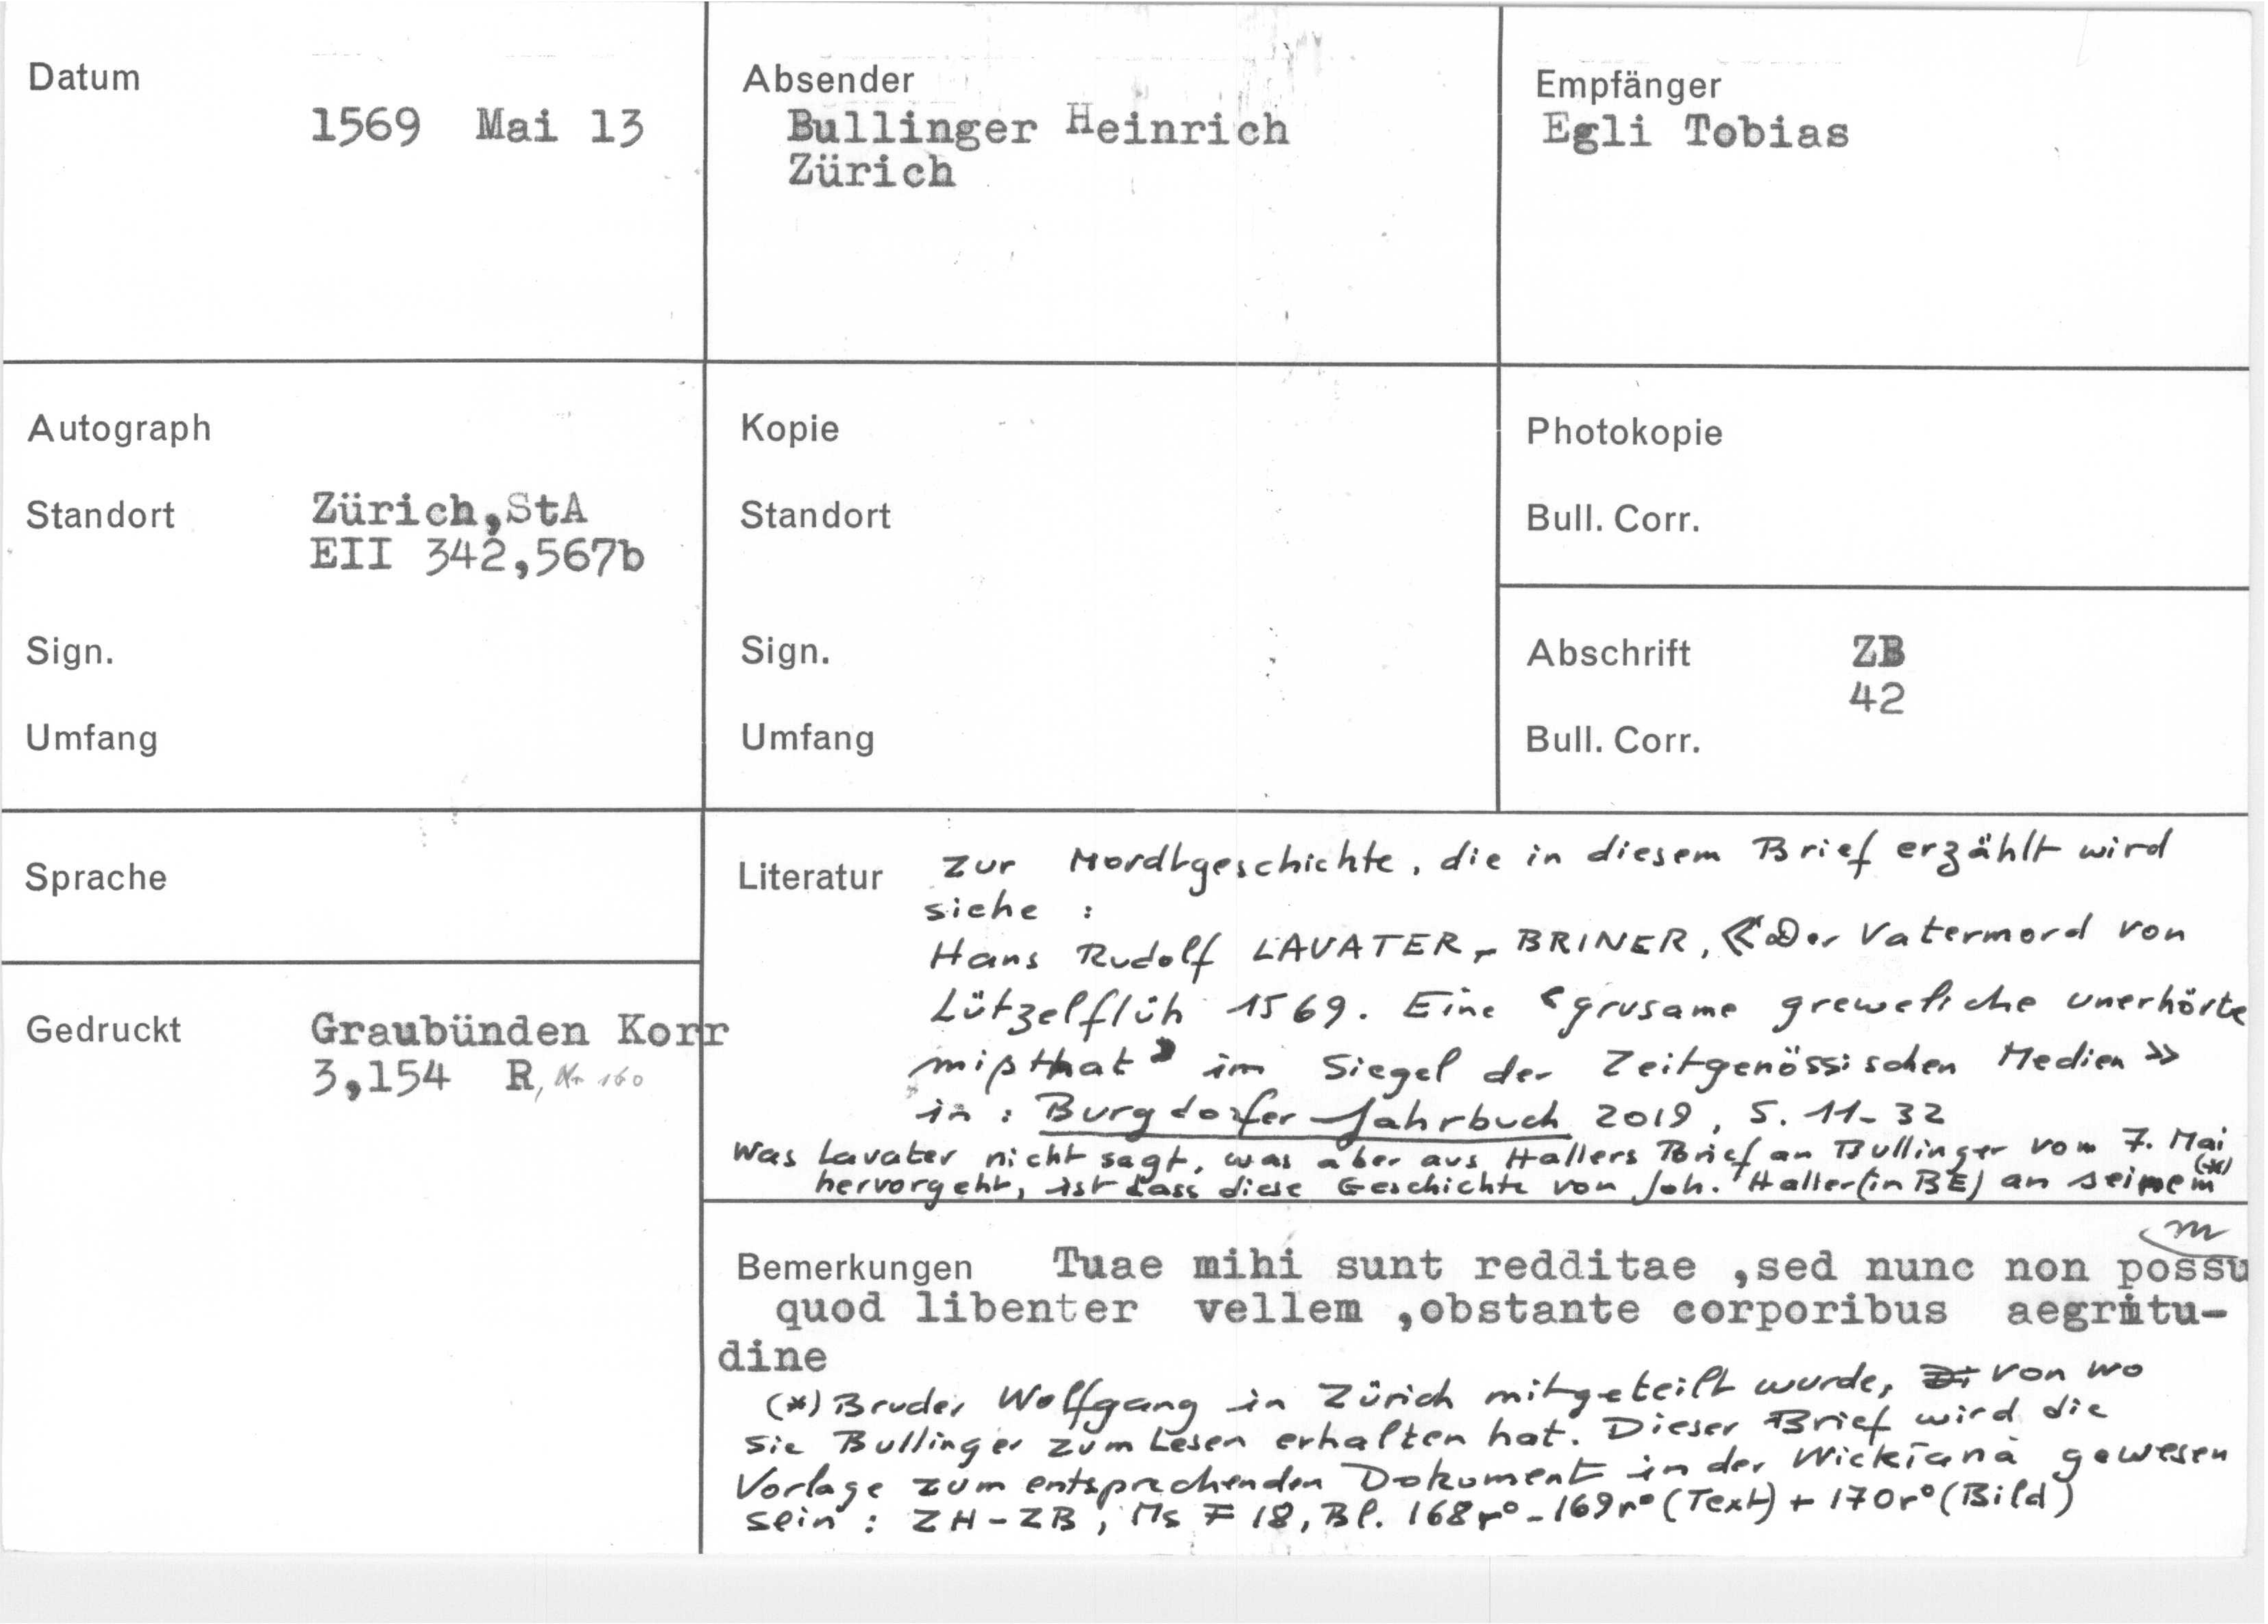 Datum
1569 Mai 13
Absender
Bullinger Heinrich
Zürich
Empfänger
Egli Tobias
Autograph
Standort Zürich,StA
EII 342,567b
Sign.
Umfang
Kopie
Standort
Sign.
Umfang
Photokopie
Bull. Corr.
Abschrift ZB
42
Bull. Corr.
Sprache
Gedruckt Graubünden Korr
3,154 R, Nr 160
Literatur Zur Mordtgeschichte, die in diesem Brief erzählt wird
siehe :
Hans Rudolf LAVATER-BRINER, «Der Vatermord von
Lützelflüh 1569. Eine ‹grusame greweliche unerhörte
mißthat› im Siegel der Zeitgenössischen Medien »
in : Burgdorfer Jahrbuch 2019, S. 11-32
Was Lavater nicht sagt, was aber aus Hallers Brief an Bullinger vom 7. Mai
hervorgeht, ist dass diese Geschichte von Joh. Haller (in BE) an seinem (*)
Bemerkungen Tuae mihi sunt redditae ,sed nunc non possum
quod libenter vellem ,obstante corporibus aegritu-
dine
(*) Bruder Wolfgang in Zürich mitgeteilt wurde, von wo
sie Bullinger zum Lesen erhalten hat. Dieser Brief wird die
Vorlage zum entsprechenden Dokument in der Wickiana gewesen
sein : ZH-ZB, Ms F 18, Bl. 168r°-169r° (Text) + 170r° (Bild)